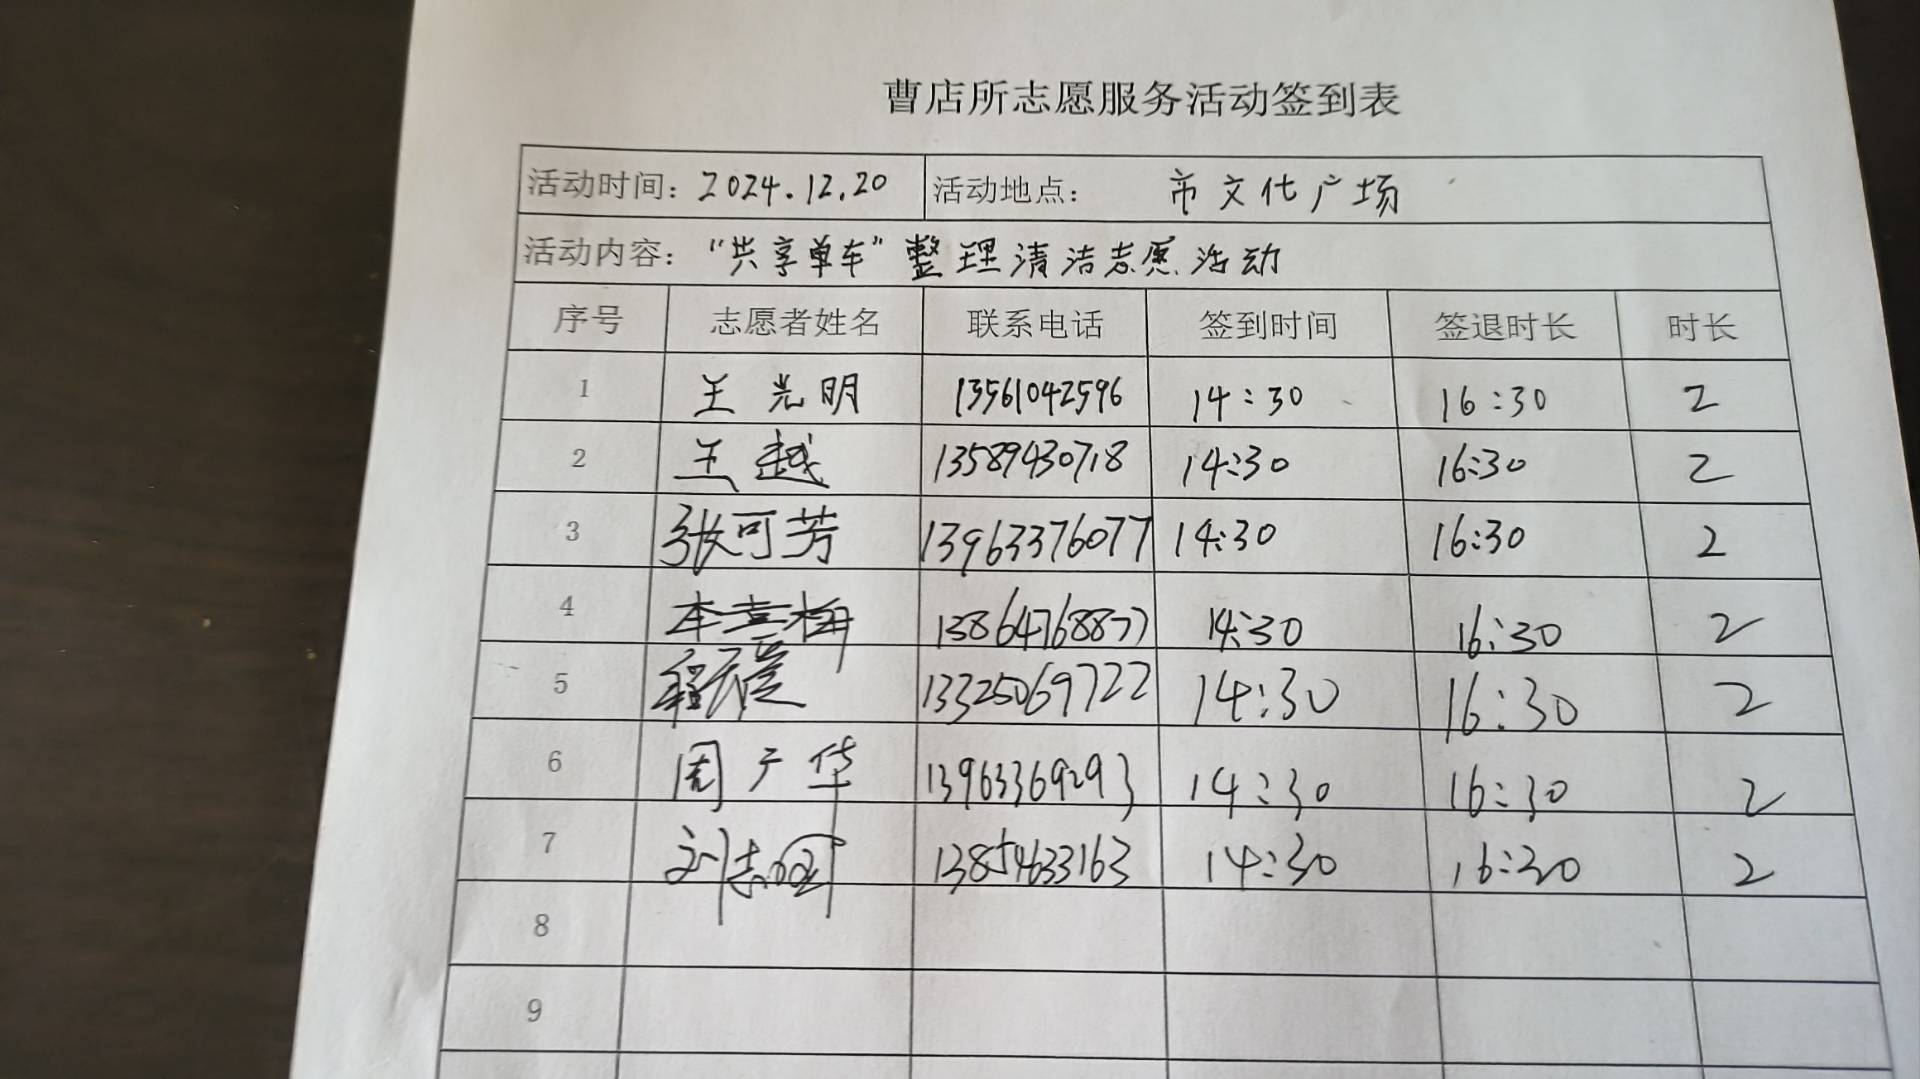 曹店所志愿服务活动签到表
活动时间：2024.12.20 活动地点： 市文化广场
活动内容："共享单车"整理清洁志愿活动
序号 志愿者姓名 联系电话 签到时间 签退时长 时长
1 王光明 13561042596 14:30 16:30 2
2 王越 13589430718 14:30 16:30 2
3 张可芳 13963376077 14:30 16:30 2
4 13864768877 14:30 16:30 2
5 13325069722 14:30 16:30 2
6 周广华 13963369293 14:30 16:30 2
7 刘志 13854633163 14:30 16:30 2
8
9